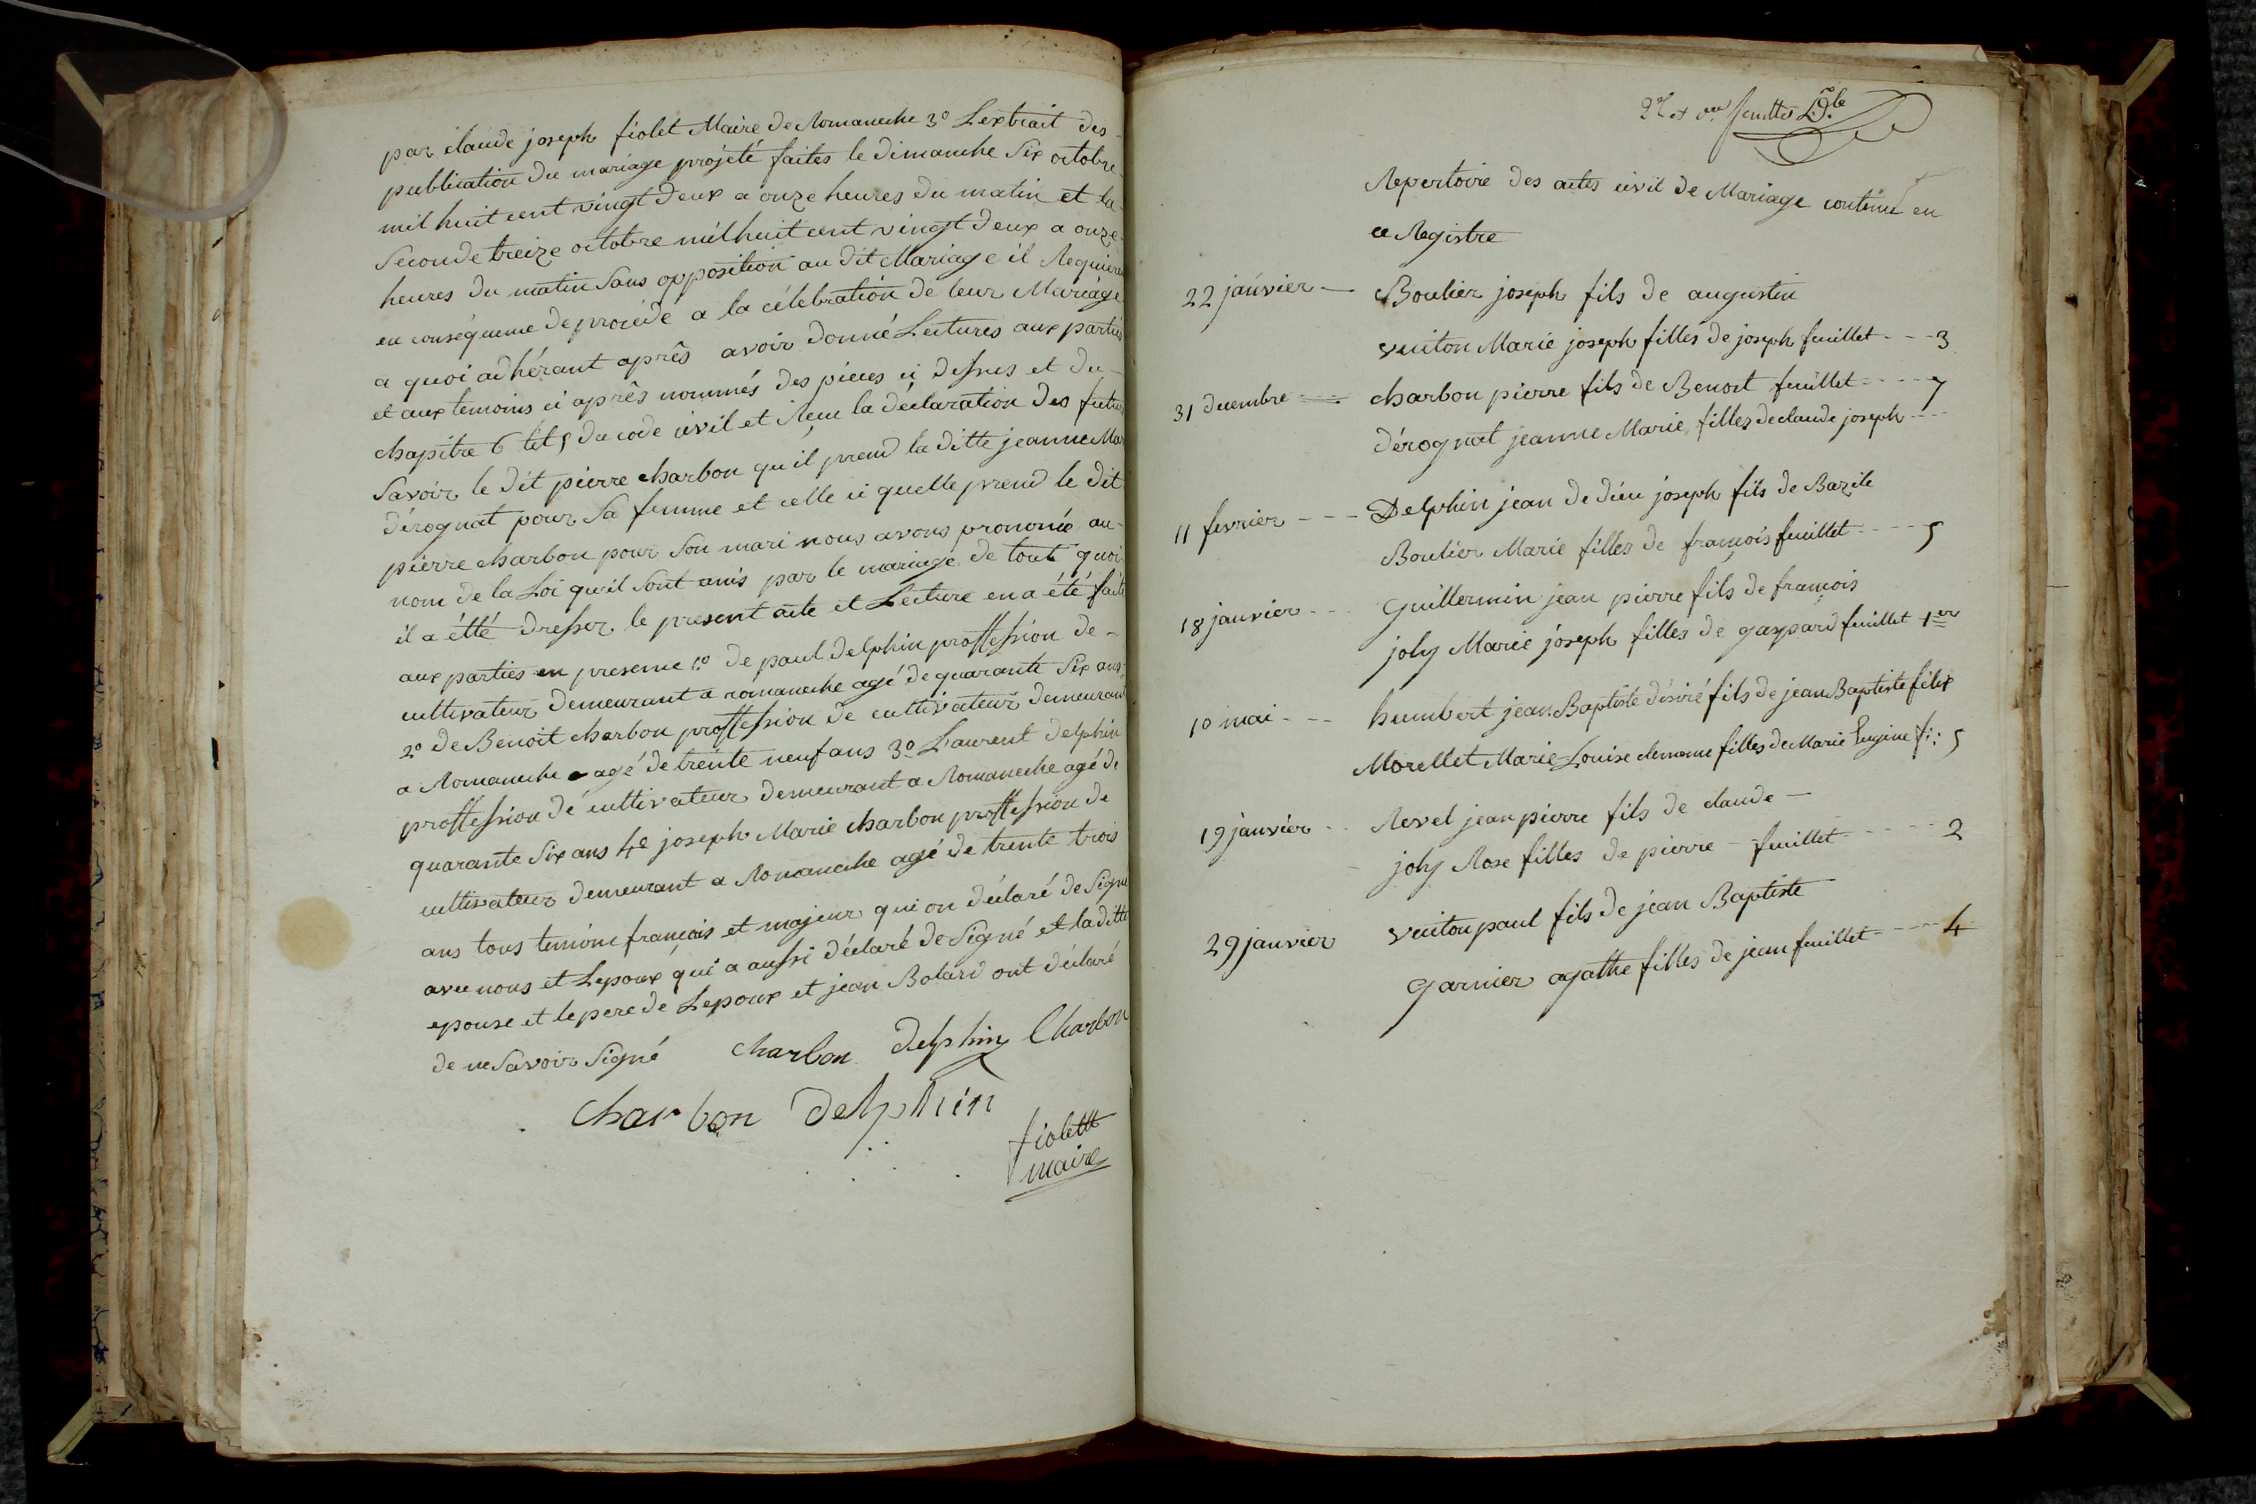 par claude joseph fiolet Maire de Romaneche 3º Lextrait des
publication du mariage projeté faites le dimanche Six octobre
mil huit cent vingt deux a onze heures du matin et la
Seconde treize octobre mil huit cent vingt deux a onze
heures du matin Sans opposition au dit Mariage il Requiere
en conséquence de procéde a la célebration de leur Mariage
a quoi adhérant après avoir donné Lectures aux parties
et aux temoins ci après nommés des pieces ci dessus et du
chapitre 6 tit 5 du code civil et Reçu la déclaration des futur
Savoir le dit pierre charbon qu'il prend la ditte jeanne Mar
dérognat pour Sa femme et celle ci quelle prend le dit
pierre charbon pour Son mari nous avons prononcé au
nom de la Loi qu'il Sont unis par le mariage de tout quoi
il a étté dresser le present acte et Lecture en a été faite
aux parties en presence 1º de paul delphin proffession de
cultivateur demeurant a romaneche agé de quarante Six ans
2º de Benoit charbon proffession de cultivateur demeurant
a Romaneche agé de trente neuf ans 3º Laurent delphin
proffession de cultivateur demeurant a Romaneche agé de
quarante Six ans 4e joseph Marie charbon proffession de
cultivateur demeurant a Romaneche agé de trente trois
ans tous temoins français et majeur qui on déclaré de Signe
avec nous et Lepoux qui a aussi déclaré de Signé et la ditte
epouse et le pere de Lepoux et jean Bolard ont déclaré
de ne Savoir Signé charbon delphin Charbon
charbon delphin
fiolet
maire
feuillet
Repertoire des actes civil de Mariage contenu en
ce Registre
22 janvier — Boulier joseph fils de augustin
vuiton Marie joseph filles de joseph feuillet - - - 3
31 decembre — charbon pierre fils de Benoit feuillet - - - 7
dérognat jeanne Marie filles de claude joseph - - -
11 fevrier - - - Delphin jean de dieu joseph fils de Bazile
Boulier Marie filles de françois feuillet - - - 5
18 janvier - - - Guillermin jean pierre fils de françois
joly Marie joseph filles de gaspard feuillet 1er
10 mai - - - humbert jean Baptiste désiré fils de jean Baptiste félix
Morellet Marie Louise clemence filles de Marie Eugine f: 5
19 janvier - - Revel jean pierre fils de claude —
joly Rose filles de pierre - feuillet - - - 2
29 janvier vuiton paul fils de jean Baptiste
Garnier agathe filles de jean feuillet - - - 4